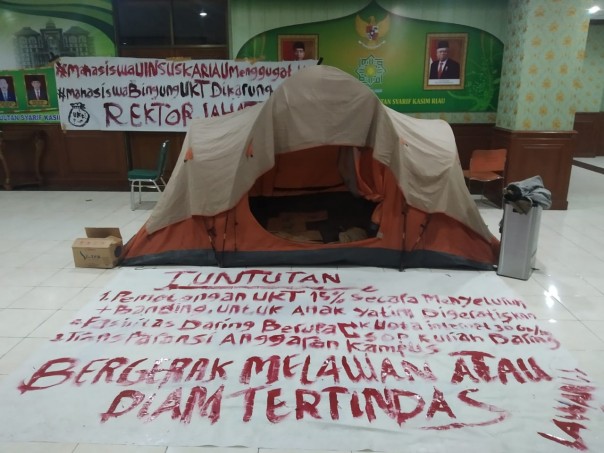 #mahasiswaUINSUSKARIAUMenggugat
#mahasiswaBingungUKTDikarung
REKTOR JAHAT
UKT
SYARIF KASIM RIAU
TUNTUTAN
1. Pemotongan UKT 15% Secara Menyeluruh
+ Banding, untuk Anak Yatim Digratiskan
2. Fasilitas Daring Berupa Kuota internet 30 GB/
SOP Kuliah Daring
3. Trans Paransi Anggaran Kampus
BERGERAK MELAWAN ATAU
DIAM TERTINDAS
LAWAN!!